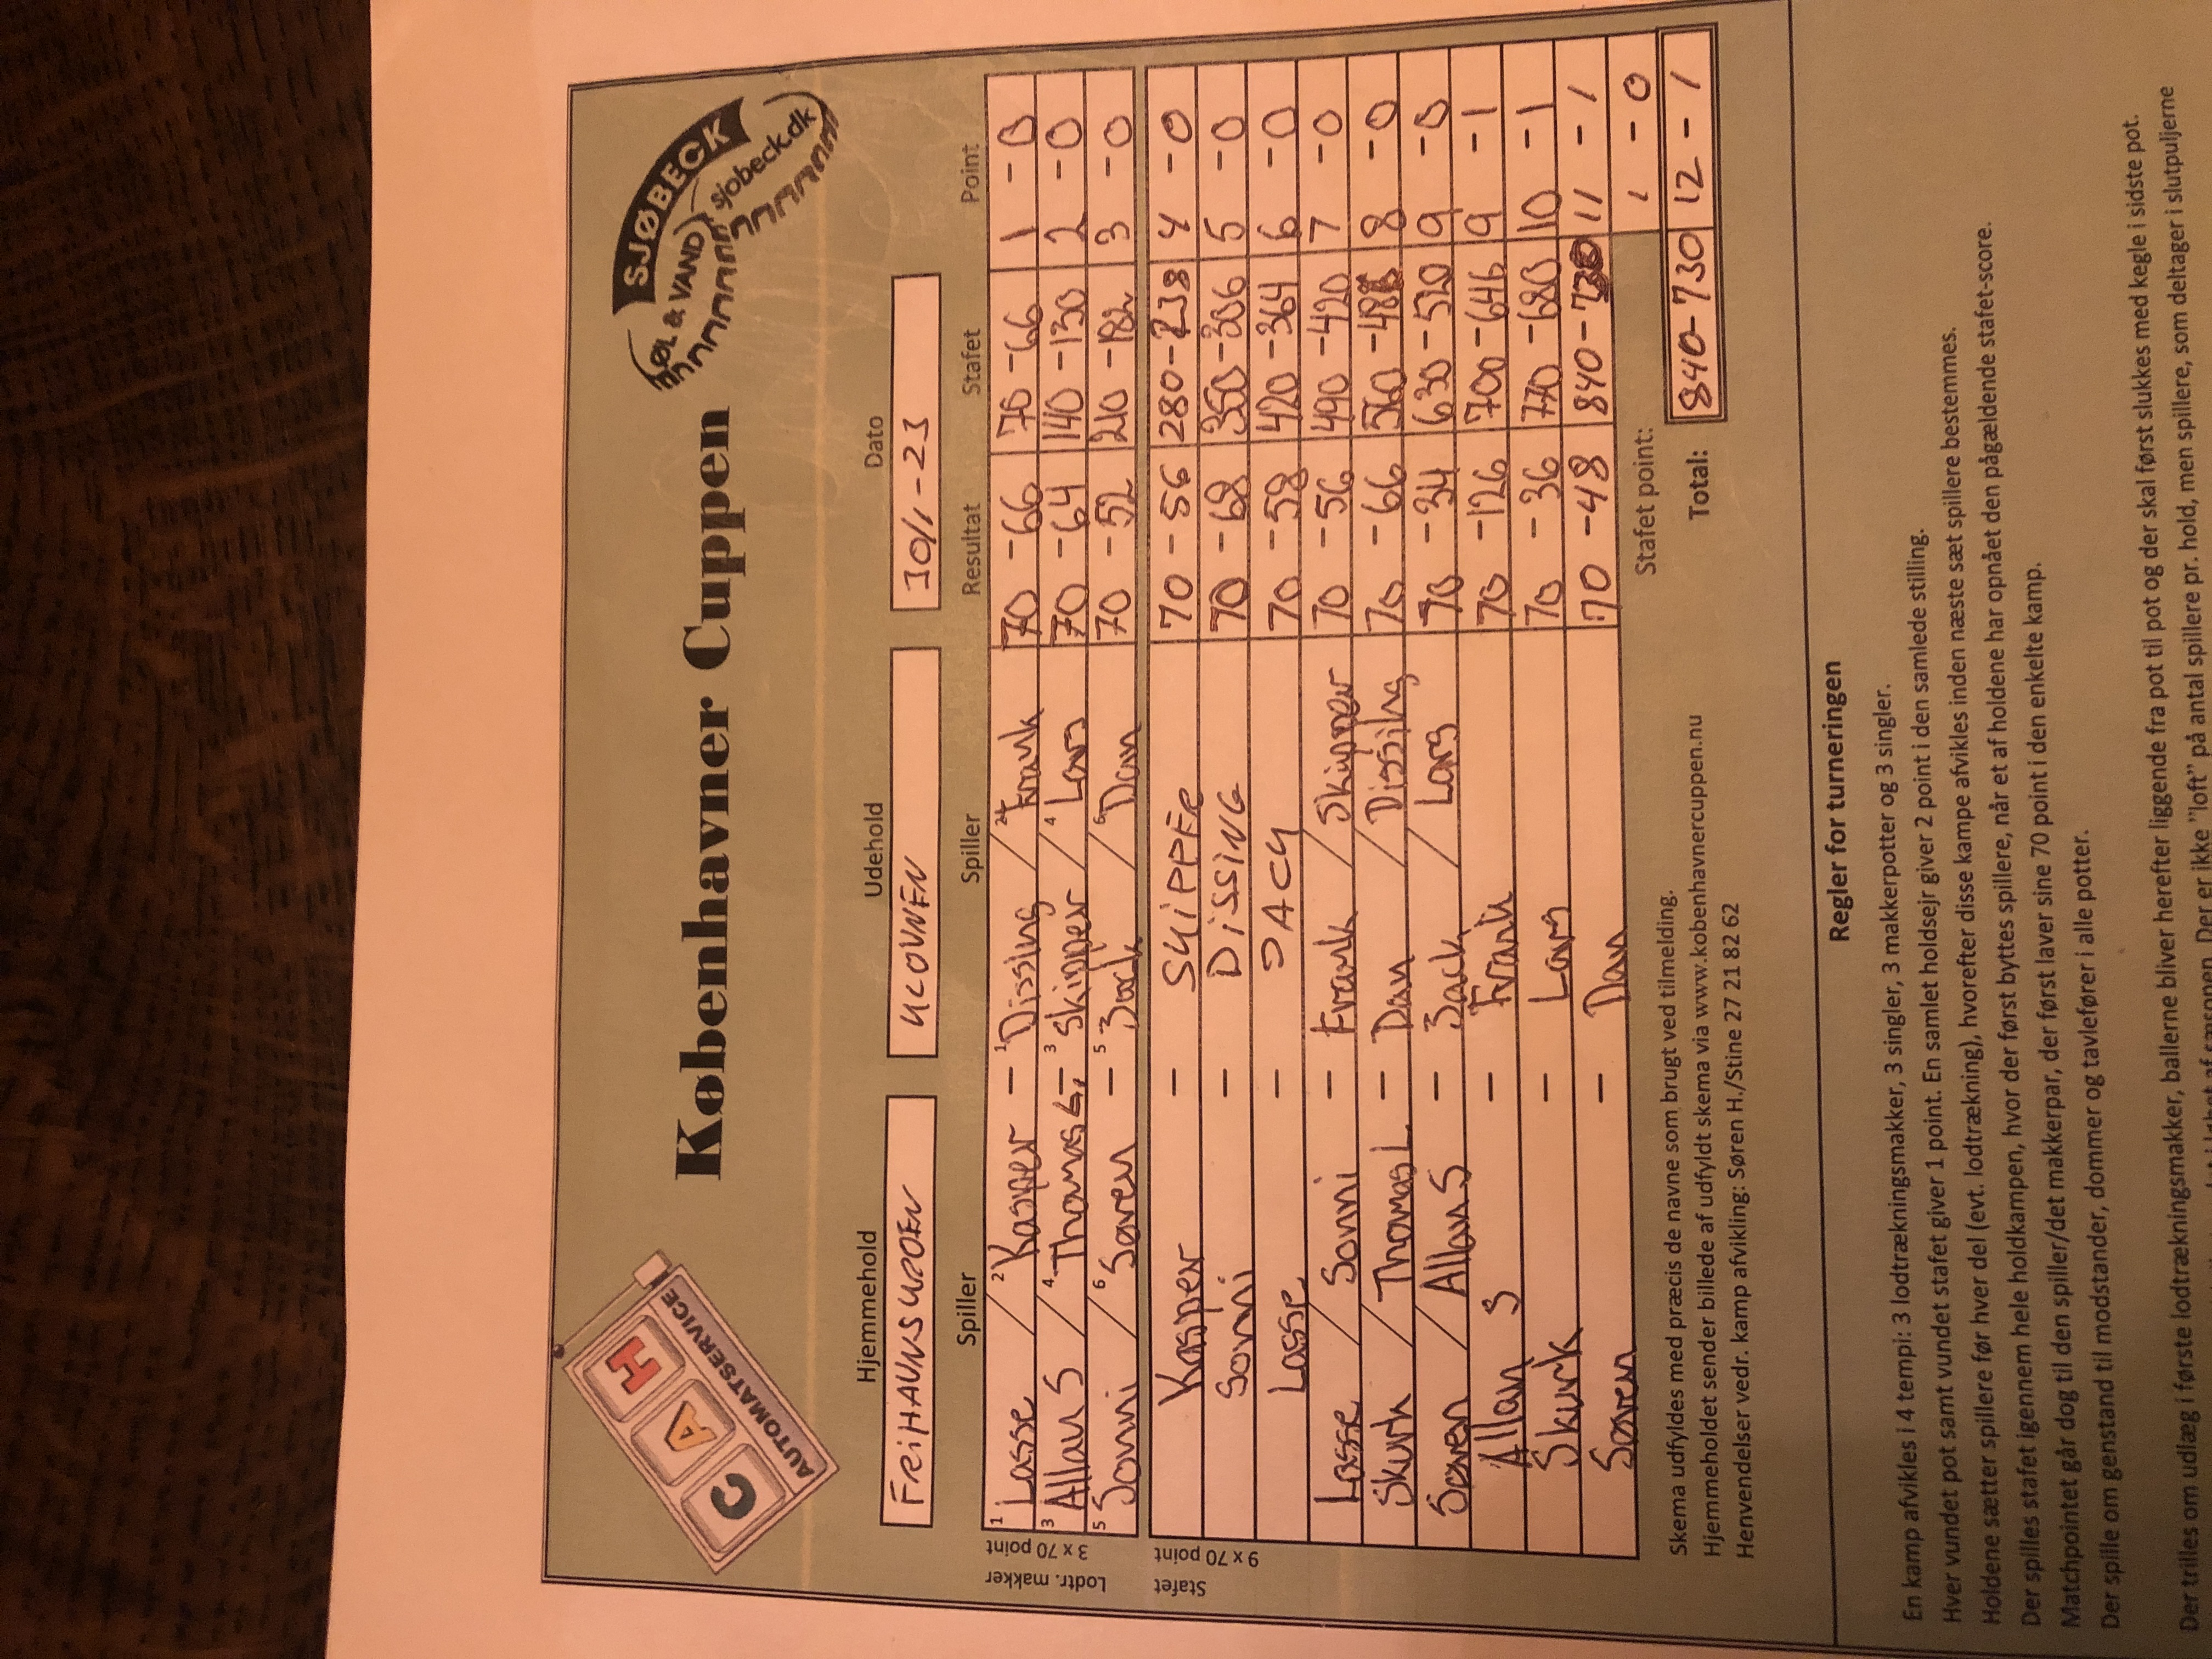 Københavner Cuppen
C A H
AUTOMATSERVICE
SJØBECK
ØL & VAND
sjobeck.dk
Hjemmehold Udehold Dato
FRIHAVNSKROEN KLOVNEN 30/1-23
Spiller Spiller Resultat Stafet Point
Lodtr. makker
3 x 70 point
1 Lasse / 2 Kasper - 1 Dissing / 2 Frank 70 - 66 70 - 66 1 - 0
3 Allan S / 4 Thomas L - 3 Skipper / 4 Lars 70 - 64 140 - 130 2 - 0
5 Sonni / 6 Søren - 5 Jack / 6 Dan 70 - 52 210 - 182 3 - 0
Stafet
9 x 70 point
Kasper - SKIPPER 70 - 56 280 - 238 4 - 0
Sonni - DISSING 70 - 68 350 - 306 5 - 0
Lasse - JACK 70 - 58 420 - 364 6 - 0
Lasse / Sonni - Frank / Skipper 70 - 56 490 - 420 7 - 0
Skurk / Thomas L - Dan / Dissing 70 - 66 560 - 486 8 - 0
Søren / Allan S - Jack / Lars 70 - 34 630 - 520 9 - 0
Allan S - Frank 70 - 126 700 - 646 9 - 1
Skurk - Lars 70 - 36 770 - 680 10 - 1
Søren - Dan 70 - 48 840 - 730 11 - 1
Stafet point: 1 - 0
Total: 840-730 12 - 1
Skema udfyldes med præcis de navne som brugt ved tilmelding.
Hjemmeholdet sender billede af udfyldt skema via www.kobenhavnercuppen.nu
Henvendelser vedr. kamp afvikling: Søren H./Stine 27 21 82 62
Regler for turneringen
En kamp afvikles i 4 tempi: 3 lodtrækningsmakker, 3 singler, 3 makkerpotter og 3 singler.
Hver vundet pot samt vundet stafet giver 1 point. En samlet holdsejr giver 2 point i den samlede stilling.
Holdene sætter spillere før hver del (evt. lodtrækning), hvorefter disse kampe afvikles inden næste sæt spillere bestemmes.
Der spilles stafet igennem hele holdkampen, hvor der først byttes spillere, når et af holdene har opnået den pågældende stafet-score.
Matchpointet går dog til den spiller/det makkerpar, der først laver sine 70 point i den enkelte kamp.
Der spille om genstand til modstander, dommer og tavlefører i alle potter.
Der trilles om udlæg i første lodtrækningsmakker, ballerne bliver herefter liggende fra pot til pot og der skal først slukkes med kegle i sidste pot.
Der er ikke "loft" på antal spillere pr. hold, men spillere, som deltager i slutpuljerne